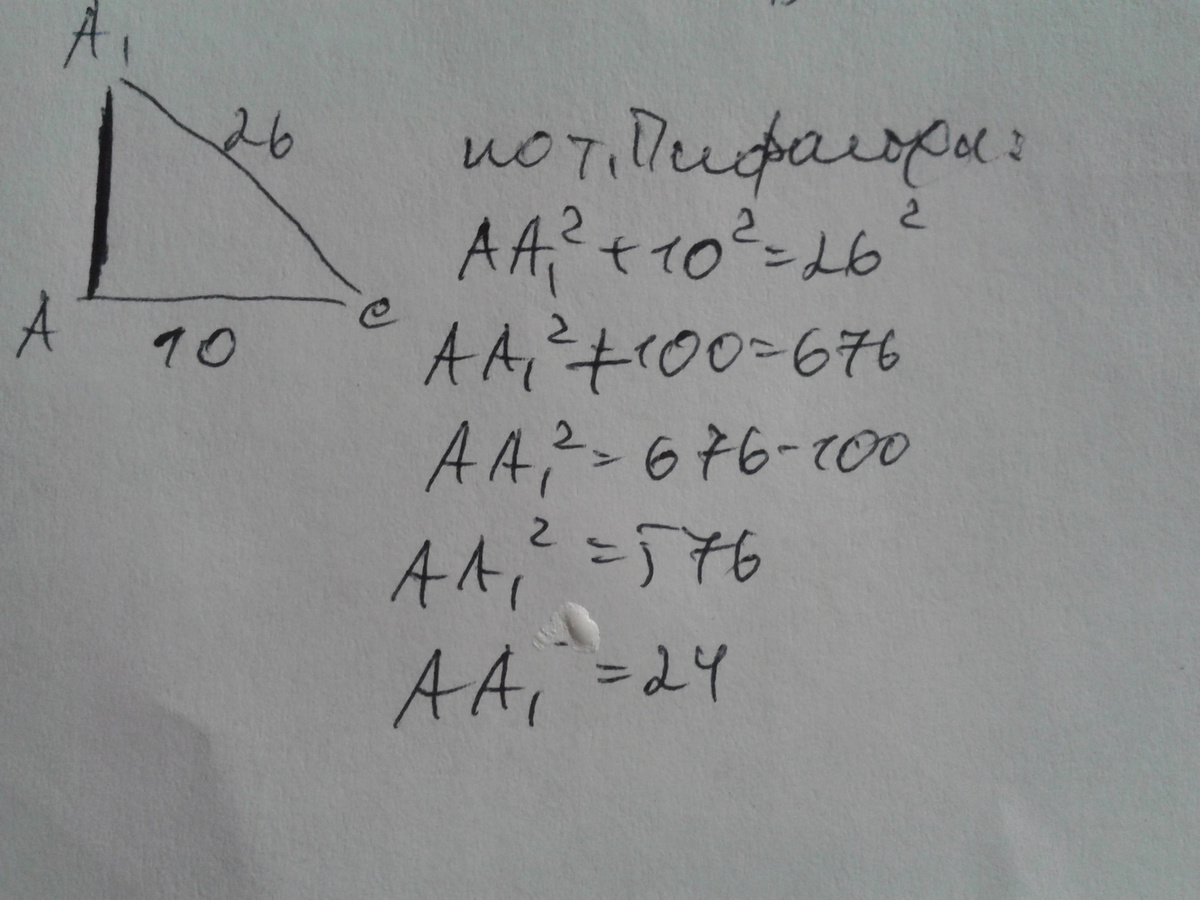 A₁
26
A
10
C
по т. Пифагора:
AA₁² + 10² = 26²
AA₁² + 100 = 676
AA₁² = 676 - 100
AA₁² = 576
AA₁ = 24